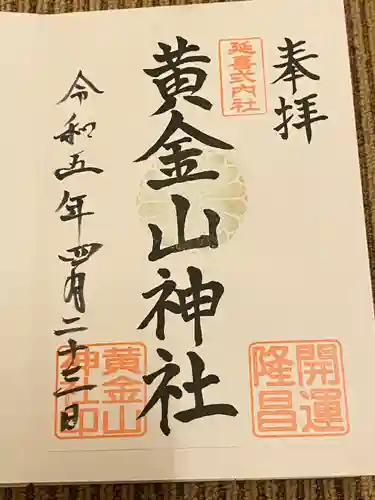 奉拝
延喜式内社
黄金山神社
開運
隆昌
令和五年四月二十三日
黄金山
神社印